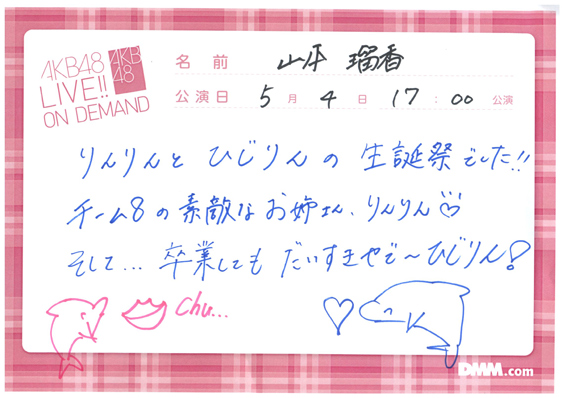 AKB48
LIVE!!
ON DEMAND
AKB
48
名前 山本 瑠香
公演日 5月 4日 17:00 公演
りんりんと ひじりんの 生誕祭でした!!
チーム8の素敵なお姉さん、りんりん♡
そして… 卒業しても だいすきやで〜ひじりん!
chu...
DMM.com